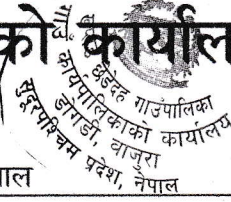 को कार्याल
छेडेदह गाउँपालिका
गाउँ कार्यपालिकाको कार्यालय
डोगडी, बाजुरा
सुदूरपश्चिम प्रदेश, नेपाल
ाल